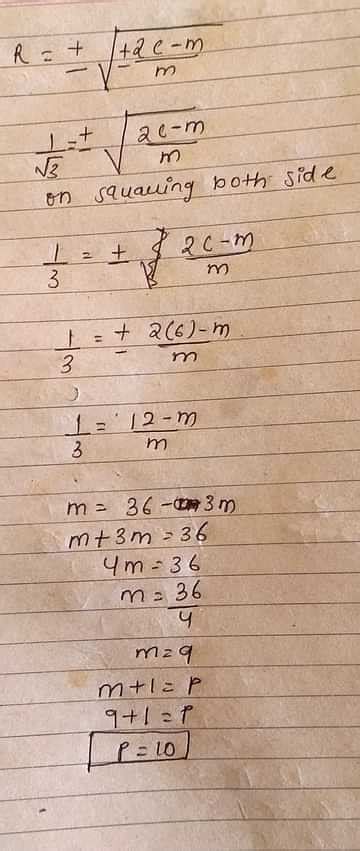 R = ± √(±2c-m/m)
1/√3 = ± √(2c-m/m)
on squaring both side
1/3 = ± 2c-m/m
1/3 = ± 2(6)-m/m
1/3 = 12-m/m
m = 36-3m
m+3m=36
4m=36
m = 36/4
m=9
m+1=P
9+1=P
P=10